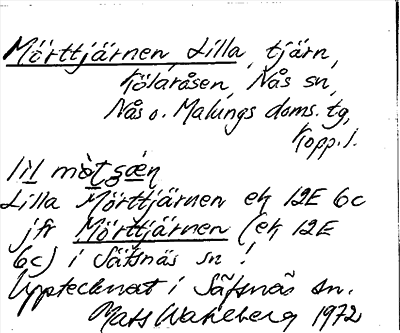 Mörttjärnen, Lilla, tjärn,
Kölaråsen, Nås sn,
Nås o. Malungs doms. tg,
Kopp. l.
lìl mò̀t
Lilla Mörttjärnen ek 12E 6c
jfr Mörttjärnen (ek 12E
6c) i Säfsnäs sn!
Upptecknat i Säfsnäs sn.
Mats Wahlberg 1972